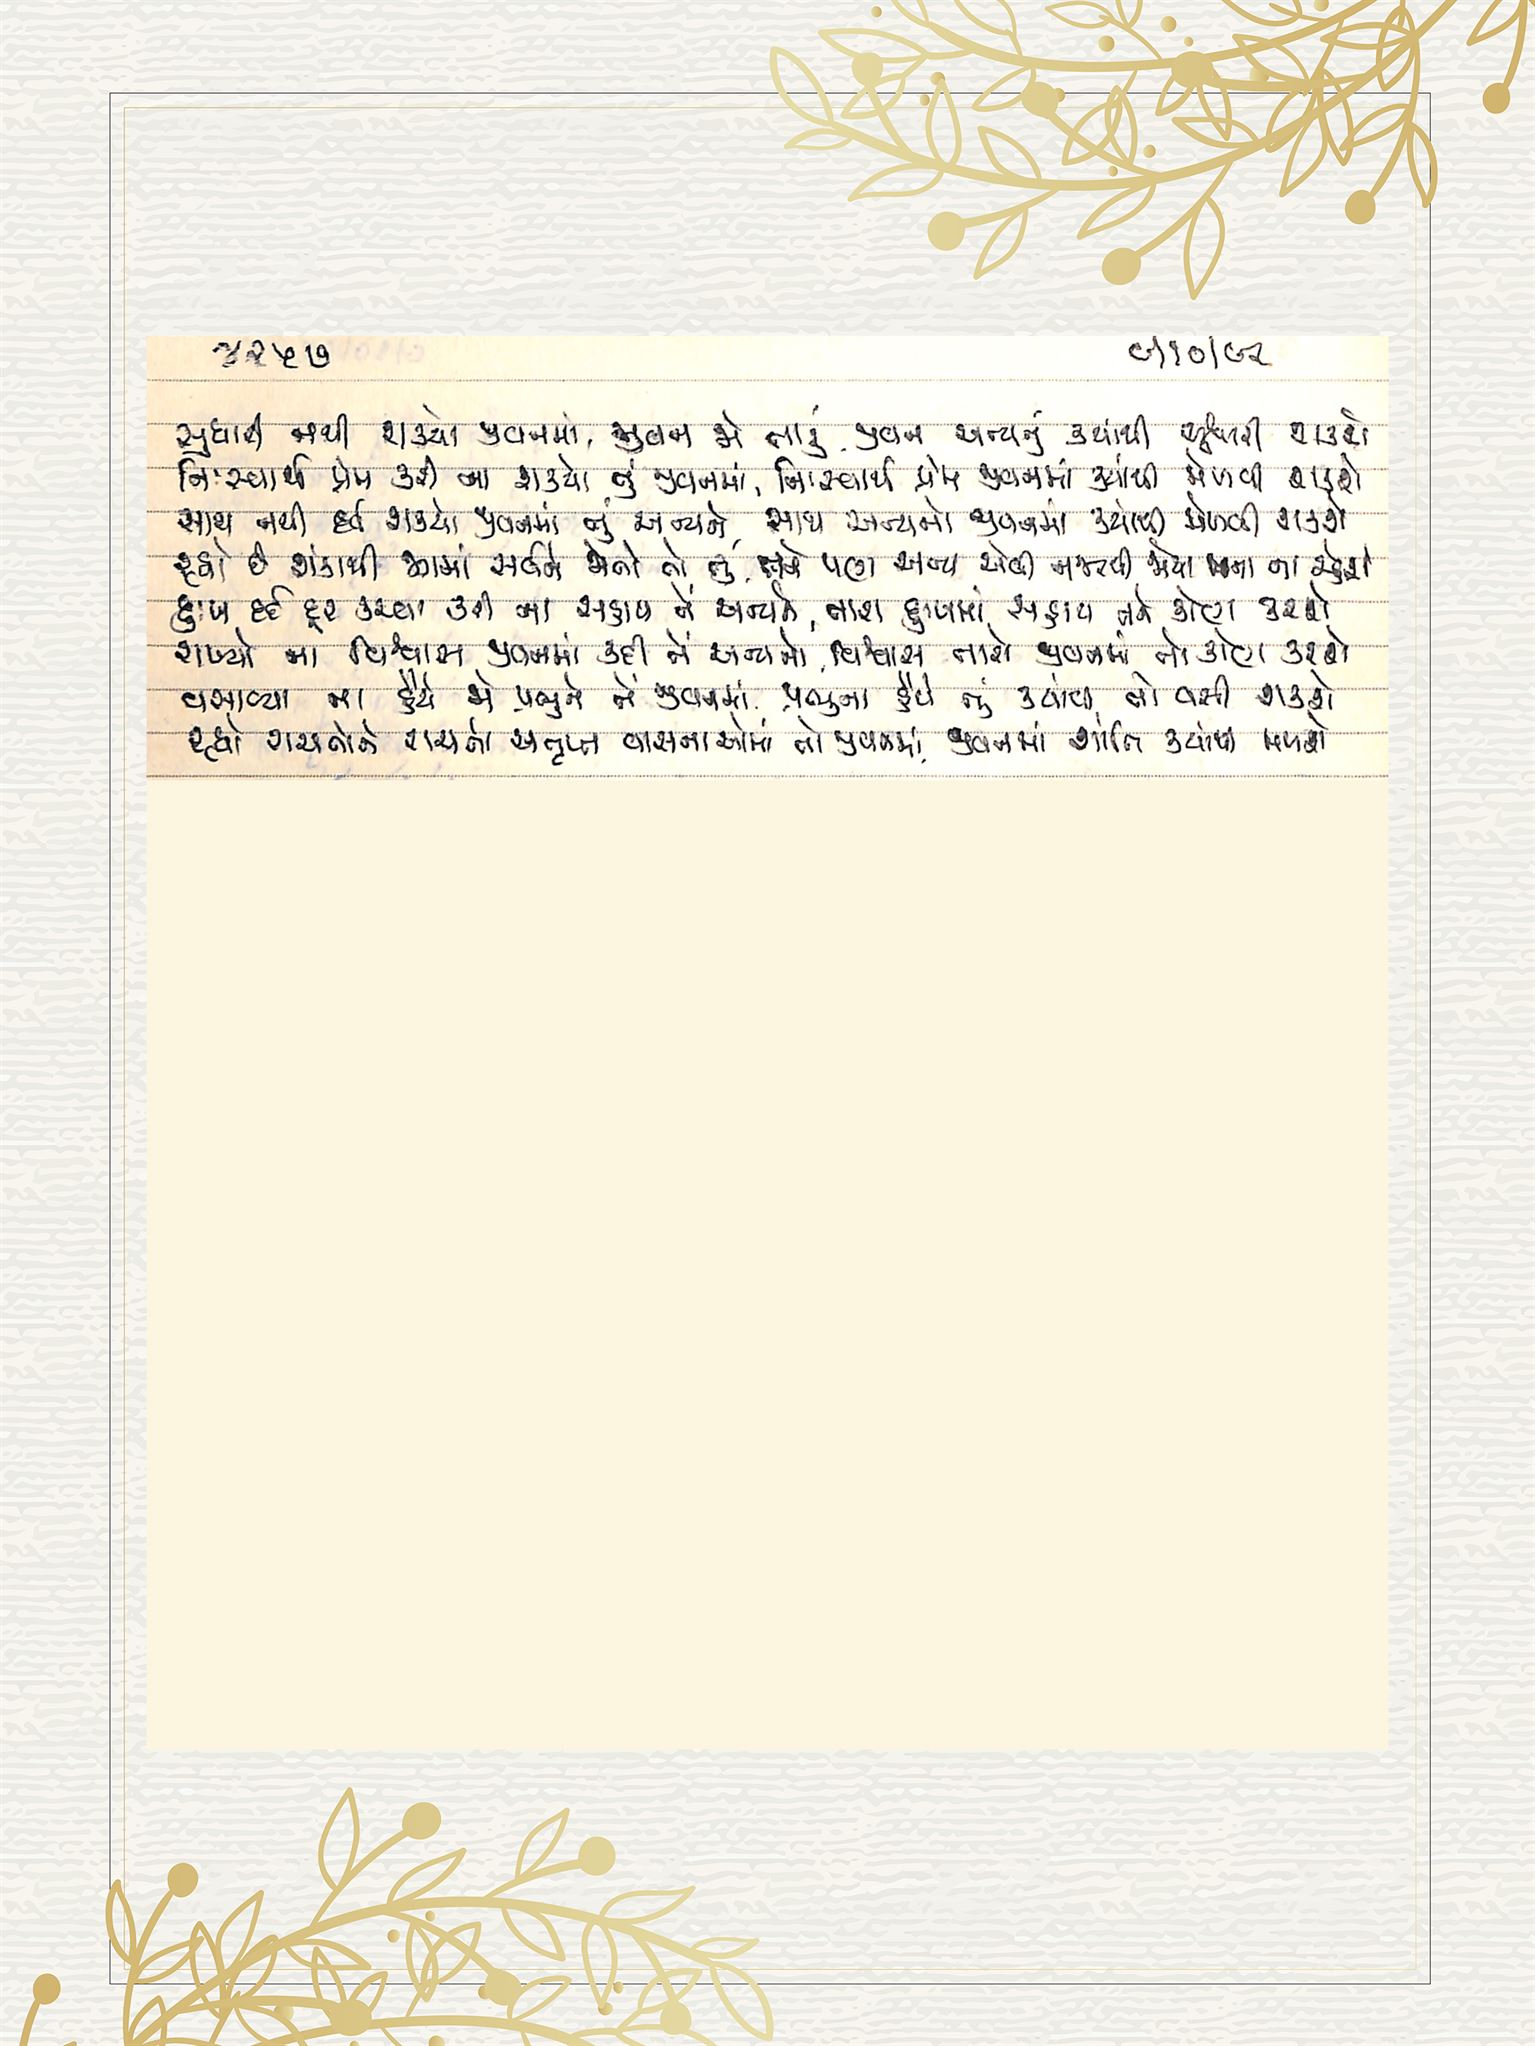 ૪૨૫૭ ૯/૧૦/૯૨
સુધારી નથી શક્યો જીવનમાં, જીવન જે તારું, જીવન અન્યનું ક્યાંથી શકશે
નિઃસ્વાર્થ પ્રેમ કરી ના શક્યો તું જીવનમાં, નિઃસ્વાર્થ પ્રેમ જીવનમાં ક્યાંથી મેળવી શકશે
સાથ નથી દઈ શક્યો જીવનમાં તું અન્યને, સાથ અન્યનો જીવનમાં ક્યાંથી મેળવી શકશે
રહ્યો છે શંકાથી સર્વને જોતો તો તું, તને પણ અન્ય એવી નજરથી જોયા વિના ના રહેશે
દુઃખ દર્દ દૂર કરવા કરી ના સહાય તેં અન્યને, તારા દુઃખમાં સહાય તને કોણ કરશે
રાખ્યો ના વિશ્વાસ જીવનમાં કદી તેં અન્યનો, વિશ્વાસ તારો જીવનમાં તો કોણ કરશે
વસાવ્યા ના હૈયે જે પ્રભુને તેં જીવનમાં, પ્રભુના હૈયે તું ક્યાંથી તો વસી શકશે
રહ્યો રાચતોને રાચતો અતૃપ્ત વાસનાઓમાં તો જીવનમાં, જીવનમાં શાંતિ ક્યાંથી મળશે